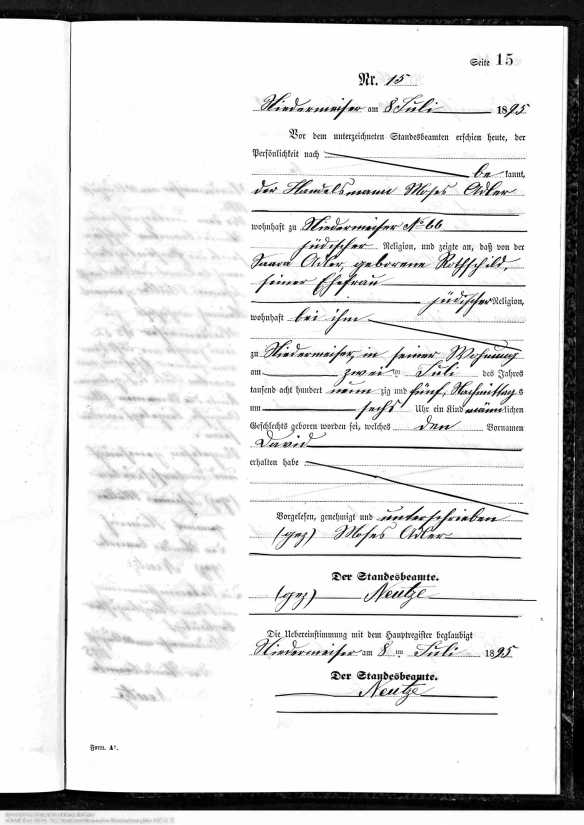 Seite 15
Nr. 15
Niedermeiser am 8 Juli 1895
Vor dem unterzeichneten Standesbeamten erschien heute, der
Persönlichkeit nach
be kannt,
der Handelsmann Moses Adler
wohnhaft zu Niedermeiser No 66
jüdischer Religion, und zeigte an, daß von der
Saara Adler, geborene Rothschild,
seiner Ehefrau
jüdischer Religion,
wohnhaft bei ihm
zu Niedermeiser, in seiner Wohnung
am zwei ten Juli des Jahres
tausend acht hundert neun zig und fünf, Nachmittag s
um sechs Uhr ein Kind männ lichen
Geschlechts geboren worden sei, welches den Vornamen
David
erhalten habe
Vorgelesen, genehmigt und unterschrieben
(gez) Moses Adler
Der Standesbeamte.
(gez) Neutze
Die Uebereinstimmung mit dem Hauptregister beglaubigt
Niedermeiser am 8 ten Juli 1895
Der Standesbeamte.
Neutze
Form. A¹.